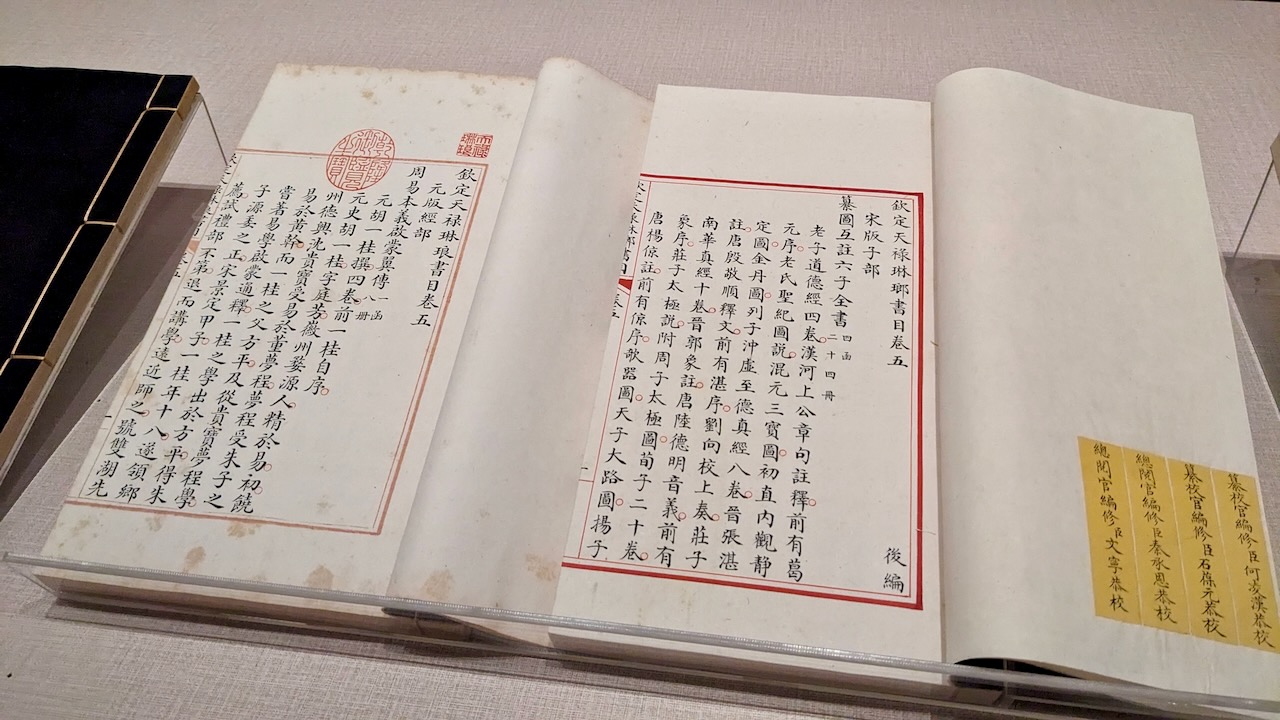 纂校官編修臣何凌漢恭校
纂校官編修臣石葆元恭校
總閱官編修臣秦承恩恭校
總閱官編修臣文寧恭校
欽定天禄琳瑯書目卷五 後編
宋版子部
纂圖互註六子全書 四函二十四冊
老子道德經四卷漢河上公章句註釋前有葛
元序老氏聖紀圖說混元三寶圖初直内觀靜
定圖金丹圖列子沖虛至德真經八卷晉張湛
註唐殷敬順釋文前有湛序劉向校上奏莊子
南華真經十卷晉郭象註唐陸德明音義前有
象序莊子太極說附周子太極圖荀子二十卷
唐楊倞註前有倞序欹器圖天子大路圖揚子
天禄琳琅
欽定天禄琳琅書目卷五
元版經部
周易本義啟蒙翼傳 一函八冊
元胡一桂撰四卷前一桂自序
元史胡一桂字庭芳徽州婺源人精於易初饒
州德興沈貴寶受易於董夢程夢程受朱子之
易於黃榦而一桂之父方平及從貴寶夢程學
嘗著易學啟蒙通釋一桂之學出於方平得朱
子源委之正宋景定甲子一桂年十八遂領鄉
薦試禮部不第退而講學遠近師之號雙湖先